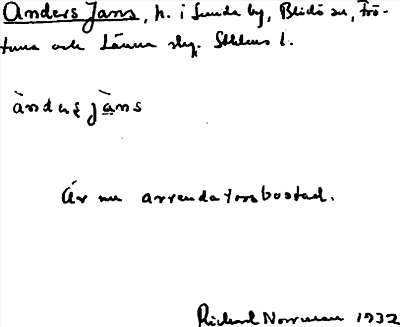 Anders Jans, h. i Sunda by, Blidö sn, Frö-
tuna och Länna skg. Sthlms l.
àndɐʂ jàns
Är nu arrendatorsbostad.
Richard Norrman 1932